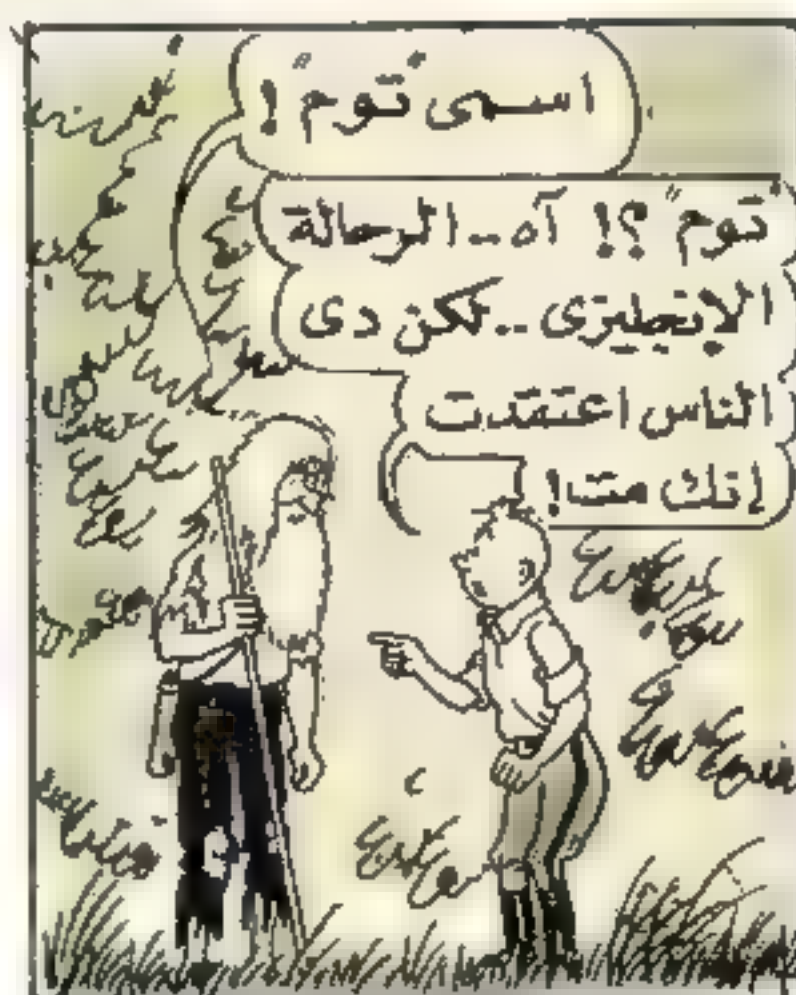 اسمى "توم" !
"توم" ؟! آه .. الرحالة
الإنجليزى .. لكن دى
الناس اعتقدت
إنك مت !